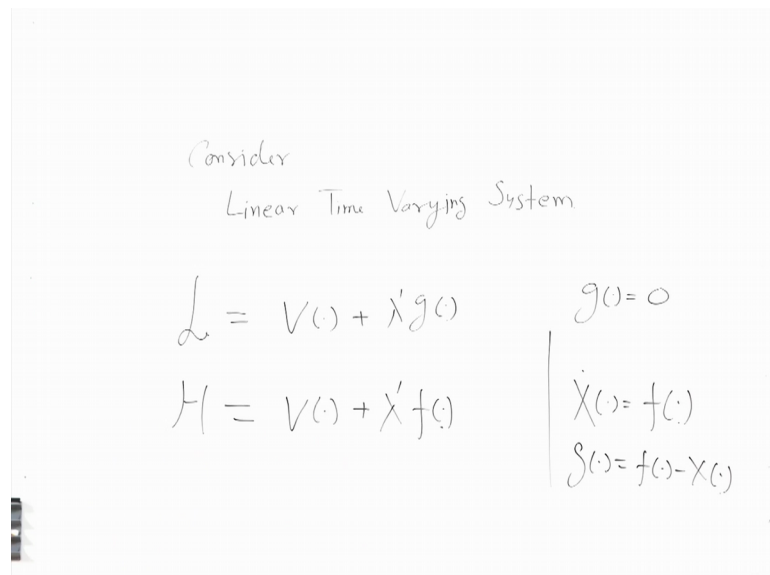 Consider
Linear Time Varying System
L = V(·) + λ'g(·)
g(·) = 0
H = V(·) + λ'f(·)
Ẋ(·) = f(·)
g(·) = f(·) - Ẋ(·)